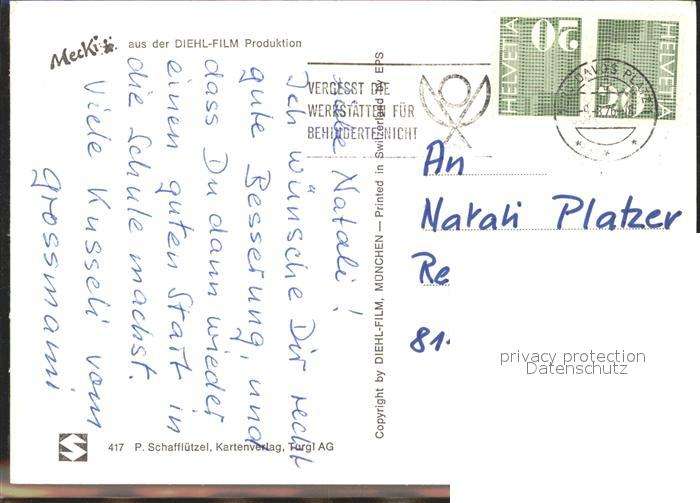 Mecki
aus der DIEHL-FILM Produktion
Liebe Natali!
Ich wünsche Dir recht
gute Besserung, und
dass Du dann wieder
einen guten Start in
die Schule machst.
Viele Kusseli vom
Grossmami
417 P. Schafflützel, Kartenverlag, Turgi AG
Copyright by DIEHL-FILM, MÜNCHEN — Printed in Switzerland by EPS
VERGESST DIE
WERKSTÄTTEN FÜR
BEHINDERTE NICHT
HELVETIA
20
HELVETIA
An
Natali Platzer
Re
81.
privacy protection
Datenschutz